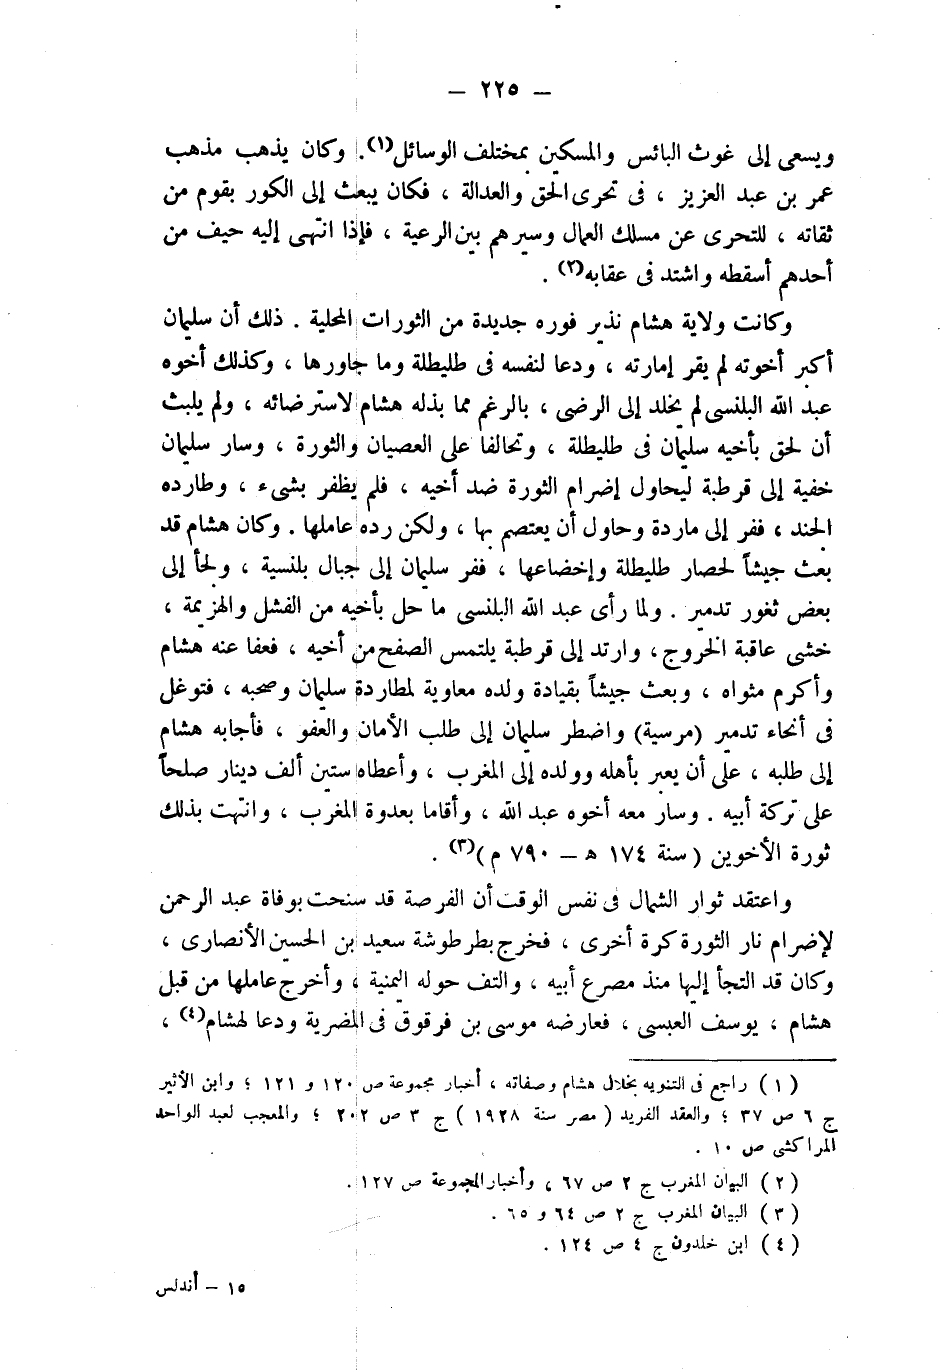 — ٢٢٥ —
ويسعى إلى غوث البائس والمسكين بمختلف الوسائل(١). وكان يذهب مذهب
عمر بن عبد العزيز ، فى تحرى الحق والعدالة ، فكان يبعث إلى الكور بقوم من
ثقاته ، للتحرى عن مسلك العمال وسيرهم بين الرعية ، فإذا انتهى إليه حيف من
أحدهم أسقطه واشتد فى عقابه(٢) .
وكانت ولاية هشام نذير فوره جديدة من الثورات المحلية . ذلك أن سليمان
أكبر أخوته لم يقر إمارته ، ودعا لنفسه فى طليطلة وما جاورها ، وكذلك أخوه
عبد الله البلنسى لم يخلد إلى الرضى ، بالرغم مما بذله هشام لاسترضائه ، ولم يلبث
أن لحق بأخيه سليمان فى طليطلة ، وتحالفا على العصيان والثورة ، وسار سليمان
خفية إلى قرطبة ليحاول إضرام الثورة ضد أخيه ، فلم يظفر بشىء ، وطارده
الجند ، ففر إلى ماردة وحاول أن يعتصم بها ، ولكن رده عاملها . وكان هشام قد
بعث جيشاً لحصار طليطلة وإخضاعها ، ففر سليمان إلى جبال بلنسية ، ولجأ إلى
بعض ثغور تدمير . ولما رأى عبد الله البلنسى ما حل بأخيه من الفشل والهزيمة ،
خشى عاقبة الخروج ، وارتد إلى قرطبة يلتمس الصفح من أخيه ، فعفا عنه هشام
وأكرم مثواه ، وبعث جيشاً بقيادة ولده معاوية لمطاردة سليمان وصحبه ، فتوغل
فى أنحاء تدمير (مرسية) واضطر سليمان إلى طلب الأمان والعفو ، فأجابه هشام
إلى طلبه ، على أن يعبر بأهله وولده إلى المغرب ، وأعطاه ستين ألف دينار صلحاً
على تركة أبيه . وسار معه أخوه عبد الله ، وأقاما بعدوة المغرب ، وانتهت بذلك
ثورة الأخوين (سنة ١٧٤ هـ – ٧٩٠ م)(٣) .
واعتقد ثوار الشمال فى نفس الوقت أن الفرصة قد سنحت بوفاة عبد الرحمن
لإضرام نار الثورة كرة أخرى ، فخرج بطرطوشة سعيد بن الحسين الأنصارى ،
وكان قد التجأ إليها منذ مصرع أبيه ، والتف حوله اليمنية ، وأخرج عاملها من قبل
هشام ، يوسف العبسى ، فعارضه موسى بن فرقوق فى المضرية ودعا لهشام(٤) ،
(١) راجع فى التنويه بخلال هشام وصفاته ، أخبار مجموعة ص ١٢٠ و ١٢١ ؛ وابن الأثير
ج ٦ ص ٣٧ ؛ والعقد الفريد ( مصر سنة ١٩٢٨ ) ج ٣ ص ٢٠٢ ؛ والمعجب لعبد الواحد
المراكشى ص ١٠ .
(٢) البيان المغرب ج ٢ ص ٦٧ ، وأخبار المجموعة ص ١٢٧ .
(٣) البيان المغرب ج ٢ ص ٦٤ و ٦٥ .
(٤) ابن خلدون ج ٤ ص ١٢٤ .
١٥ – أندلس